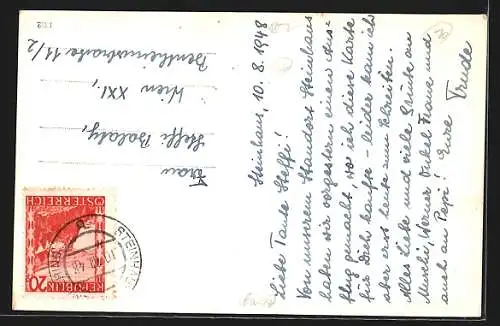 Steinhaus, 10.8.1948
Liebe Tante Steffi!
Von unserem Standort Steinhaus
haben wir vorgestern einen Aus-
flug gemacht, wo ich diese Karte
für Dich kaufte - leider kann ich
aber erst heute zum Schreiben.
Alles Liebe und viele Grüße an
Muschi, Werner, Onkel Franz und
auch an Pepi! Eure Trude
Frau
Steffi
Wien XXI,
Bentheimstrasse 11/2
REPUBLIK
ÖSTERREICH
20
STEINHAUS
10.VIII.48